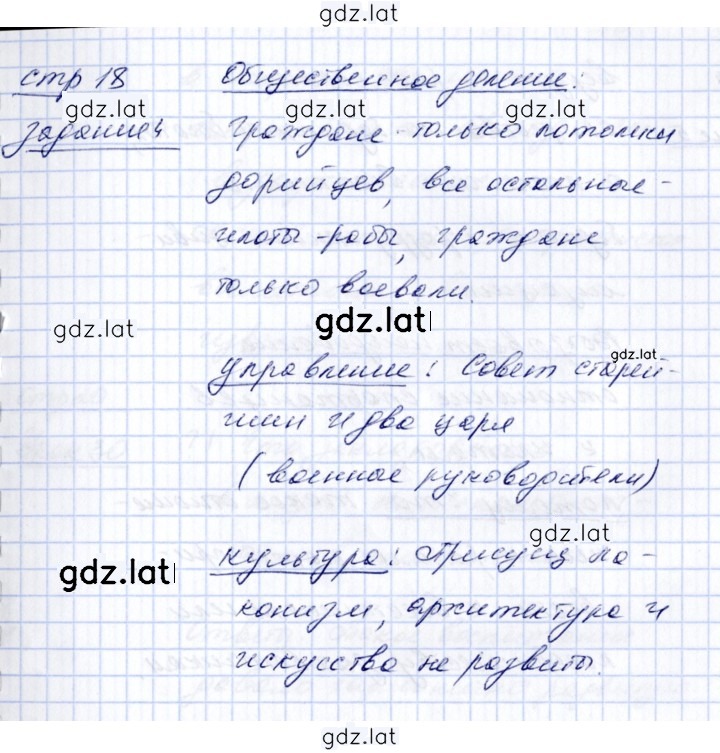 gdz.lat
стр 18 Общественное деление:
gdz.lat gdz.lat gdz.lat
задание 4 Граждане - только потомки
дорийцев, все остальные -
илоты - рабы, граждане
только воевали.
gdz.lat gdz.lat
gdz.lat
Управление: Совет старей-
шин и два царя
(военные руководители)
gdz.lat
gdz.lat Культура: Присущ ла-
конизм, архитектура и
искусство не развиты.
gdz.lat